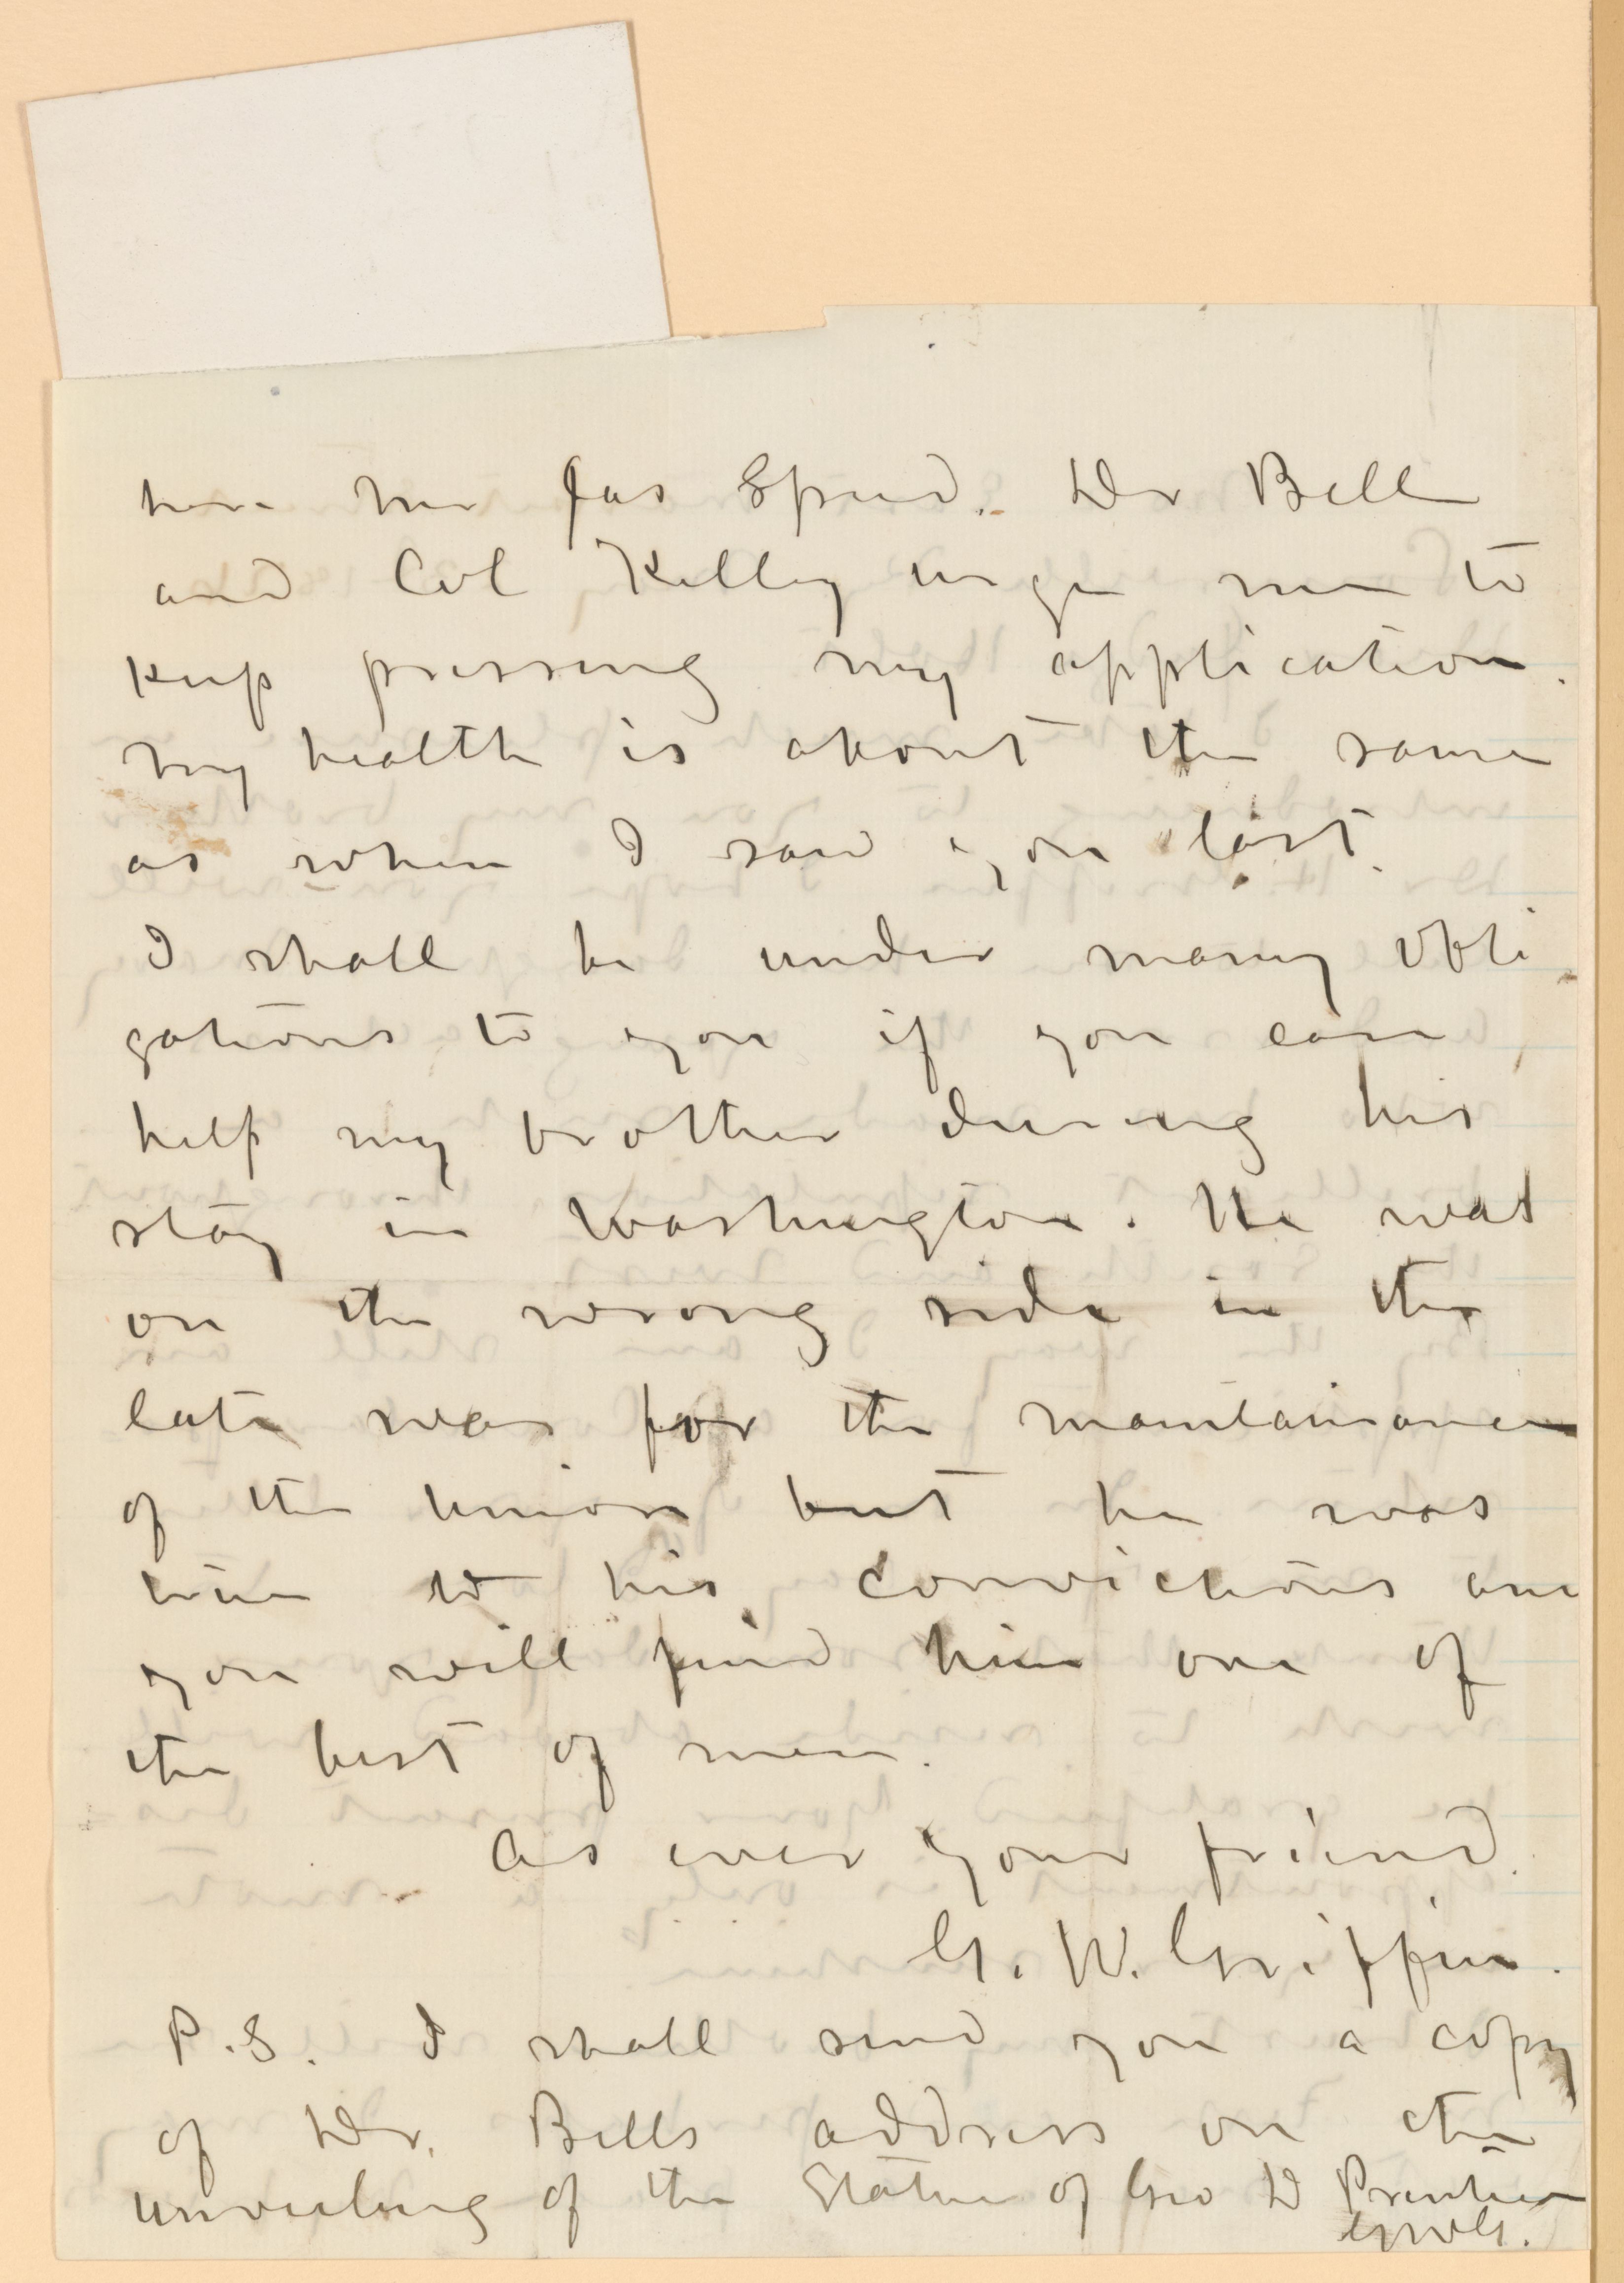 here Mr Jas Speed. Dr Bell
and Col Kelley urge me to
keep pressing my application.
my health is about the same
as when I saw you last.
I shall be under many obli
gations to you if you can
help my brother during his
stay in Washington. He was
on the wrong side in the
late war for the maintainance
of the Union but he was
true to his convictions and
you will find him one of
the best of men.
As ever your friend.
G. W. Griffin.
P.S. I shall send you a copy
of Dr. Bells address on the
unveiling of the Statue of Geo D Prentice
GWG.